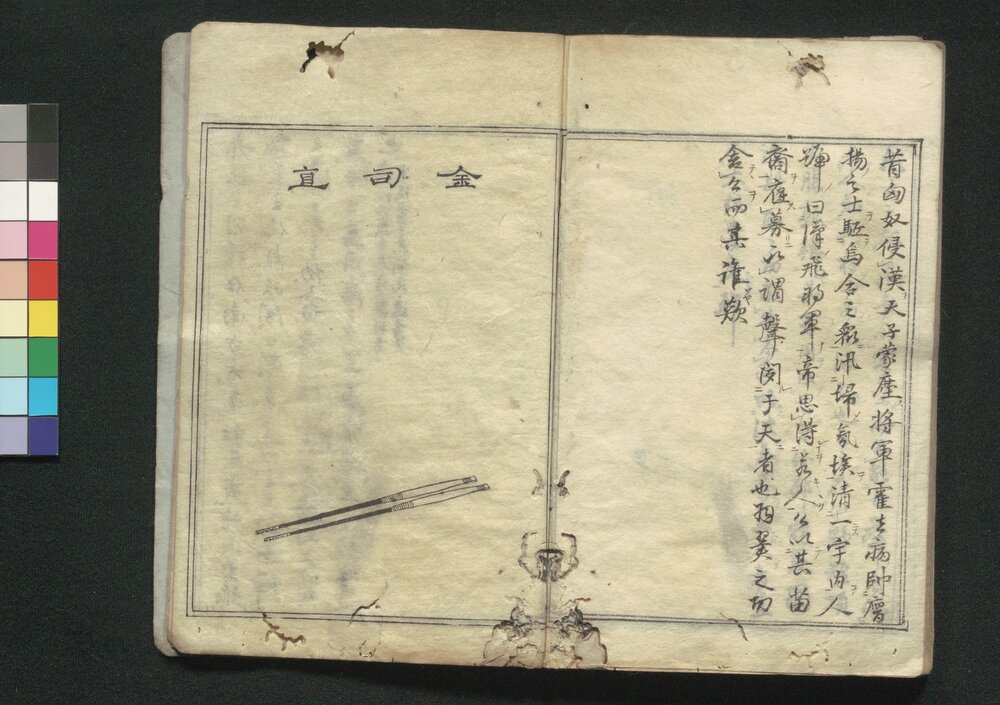 昔匈奴侵漢天子蒙塵将軍霍去病帥鷹
揚之士駈烏合之衆汛掃氛埃清一宇内人
号曰漢飛将軍帝思得若人公以其苗
裔應募所謂聲聞于天者也羽翼之功
舎公而其誰歟
金司直